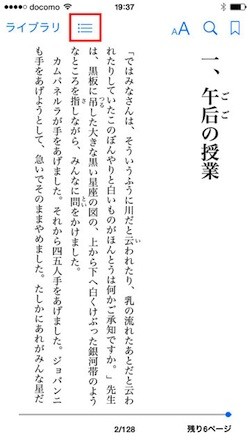 docomo 19:37
ライブラリ AA
一、午后の授業
「ではみなさんは、そういうふうに川だと云われたり、乳の流れたあとだと云わ
れたりしていたこのぼんやりと白いものがほんとうは何かご承知ですか。」先生
は、黒板に吊した大きな黒い星座の図の、上から下へ白くけぶった銀河帯のよう
なところを指しながら、みんなに問をかけました。
カムパネルラが手をあげました。それから四五人手をあげました。ジョバンニ
も手をあげようとして、急いでそのままやめました。たしかにあれがみんな星だ
2/128 残り6ページ